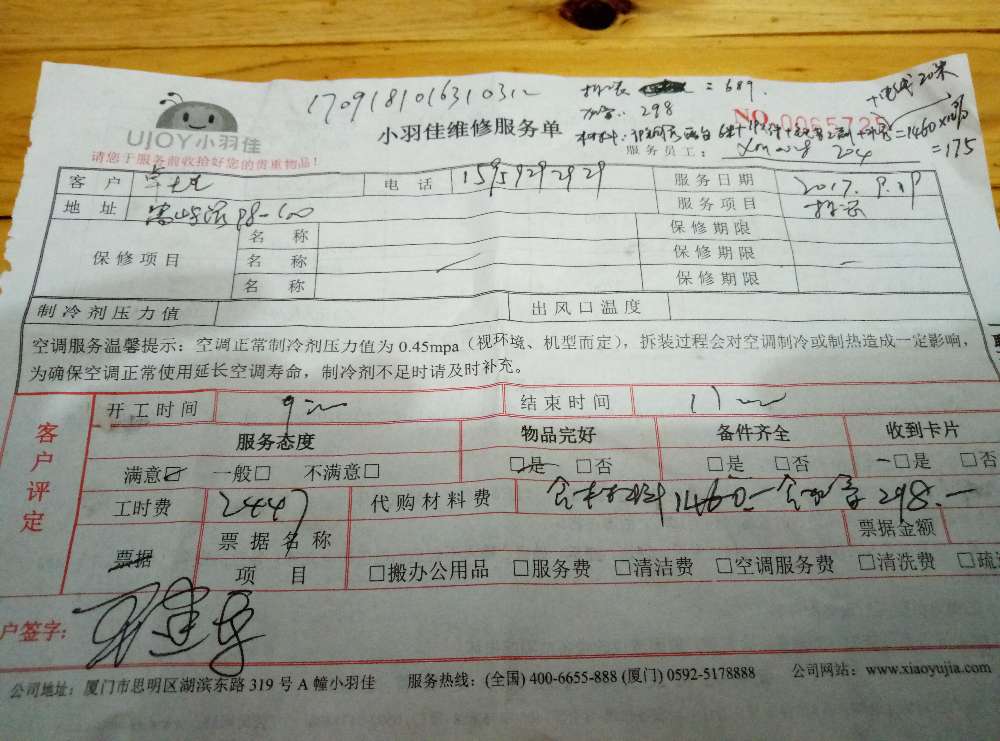 170918101631031
= 689
298
UJOY小羽佳
小羽佳维修服务单
NO.
=1460
=175
请您于服务前收拾好您的贵重物品！
服务员工：
客户 电话 15959292929 服务日期 2017.9.19
地址 98-600 服务项目
保修项目 名称 保修期限
名称 保修期限
名称 保修期限
制冷剂压力值 出风口温度
空调服务温馨提示：空调正常制冷剂压力值为 0.45mpa（视环境、机型而定），拆装过程会对空调制冷或制热造成一定影响，
为确保空调正常使用延长空调寿命，制冷剂不足时请及时补充。
客户评定
开工时间 结束时间
服务态度 物品完好 备件齐全 收到卡片
满意☑ 一般□ 不满意□ □是 □否 □是 □否 □是 □否
工时费 2447 代购材料费 含材料1460 298
票据 票据名称 票据金额
项目 □搬办公用品 □服务费 □清洁费 □空调服务费 □清洗费 □疏
户签字：
公司地址：厦门市思明区湖滨东路 319 号 A 幢小羽佳 服务热线：(全国) 400-6655-888 (厦门) 0592-5178888 公司网站：www.xiaoyujia.com